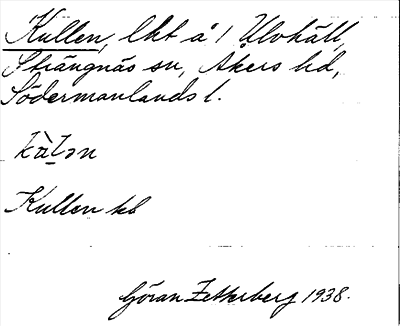 Kullen, lht å 1 Ulvhäll,
Strängnäs sn, Åkers hd,
Södermanlands l.
Kullen hb
Göran Zetterberg 1938.